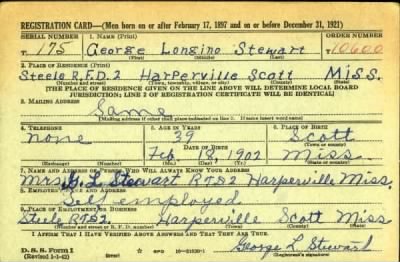 REGISTRATION CARD—(Men born on or after February 17, 1897 and on or before December 31, 1921)
SERIAL NUMBER 1. NAME (Print) ORDER NUMBER
T 175 George Longino Stewart 10600
(First) (Middle) (Last)
2. PLACE OF RESIDENCE (Print)
Steele R.F.D. 2 Harperville Scott Miss.
(Number and street) (Town, township, village, or city) (County) (State)
[THE PLACE OF RESIDENCE GIVEN ON THE LINE ABOVE WILL DETERMINE LOCAL BOARD
JURISDICTION; LINE 2 OF REGISTRATION CERTIFICATE WILL BE IDENTICAL]
3. MAILING ADDRESS
Same
[Mailing address if other than place indicated on line 2. If same insert word same]
4. TELEPHONE 5. AGE IN YEARS 6. PLACE OF BIRTH
none 39 Scott
DATE OF BIRTH (Town or county)
Feb 18, 1902 Miss
(Exchange) (Number) (Mo.) (Day) (Yr.) (State or country)
7. NAME AND ADDRESS OF PERSON WHO WILL ALWAYS KNOW YOUR ADDRESS
Mrs G. L. Stewart RT#2 Harperville Miss.
8. EMPLOYER'S NAME AND ADDRESS
Self employed
9. PLACE OF EMPLOYMENT OR BUSINESS
Steele RT#2 Harperville Scott Miss
(Number and street or R. F. D. number) (Town) (County) (State)
I AFFIRM THAT I HAVE VERIFIED ABOVE ANSWERS AND THAT THEY ARE TRUE.
D. S. S. Form 1
(Revised 1-1-42) GPO 16—21630-1
George L Stewart
(Registrant's signature)